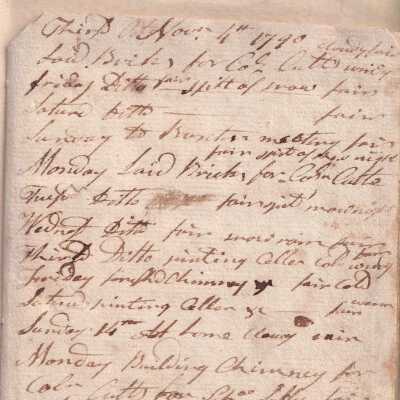 Thirsd Novr 4th 1790 cloudy fair
Laid Bricks for Coln Cutts windy
friday Ditto fair spitt of snow fair
Saturd Ditto fair
Sunday to meeting fair
fair spit of snow night
Monday Laid Bricks for Coln Cutts
Tusd Ditto fair
Wednsd Ditto fair snow rain
Thirsd Ditto pinting Celler cold windy
friday Chimney & fair Cold
Saturd pinting Celler &c fair warm
Sunday 14th At home clowdy rain
Monday Building Chimney for
Coln Cutts